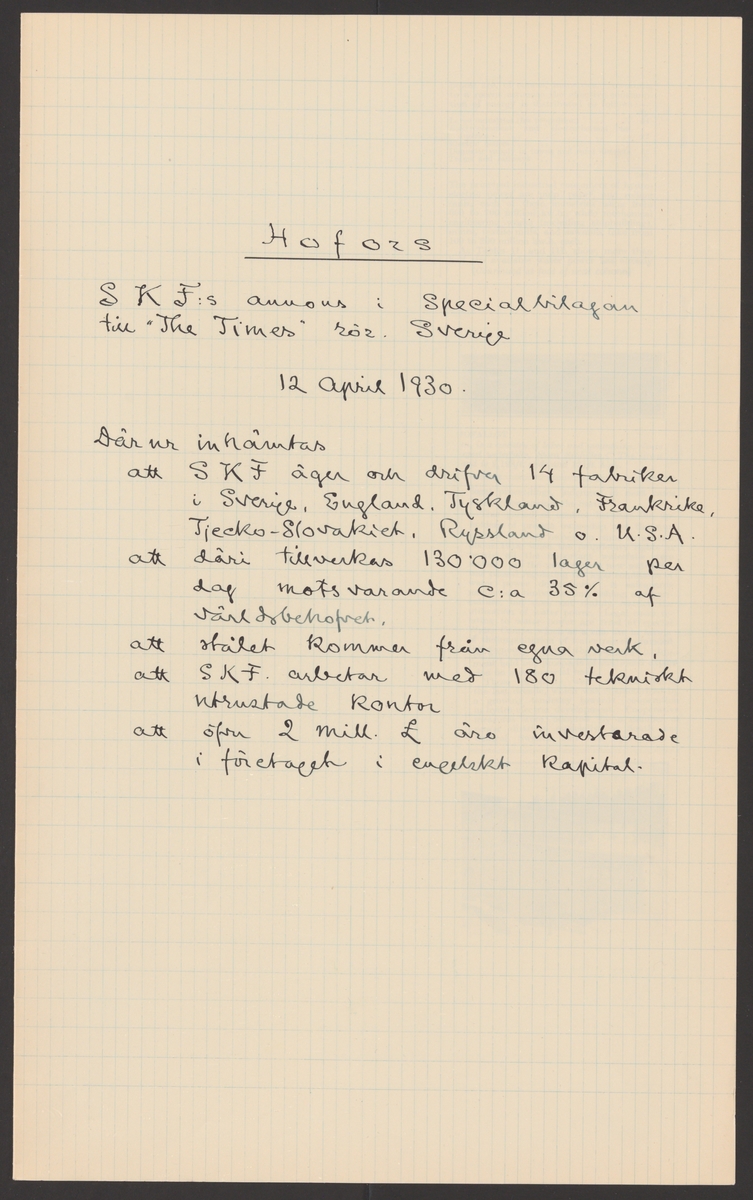 Hofors
S K F:s annons i Specialbilagan
till "The Times" rör. Sverige
12 April 1930.
Därur inhämtas
att S K F äger och drifver 14 fabriker
i Sverige, England, Tyskland, Frankrike,
Tjecko-Slovakiet, Ryssland o. U.S.A.
att däri tillverkas 130'000 lager per
dag motsvarande c:a 35% af
världsbehofvet.
att stålet kommer från egna verk,
att S.K.F. arbetar med 180 tekniskt
utrustade kontor
att öfver 2 mill. £ äro investerade
i företaget i engelskt kapital.